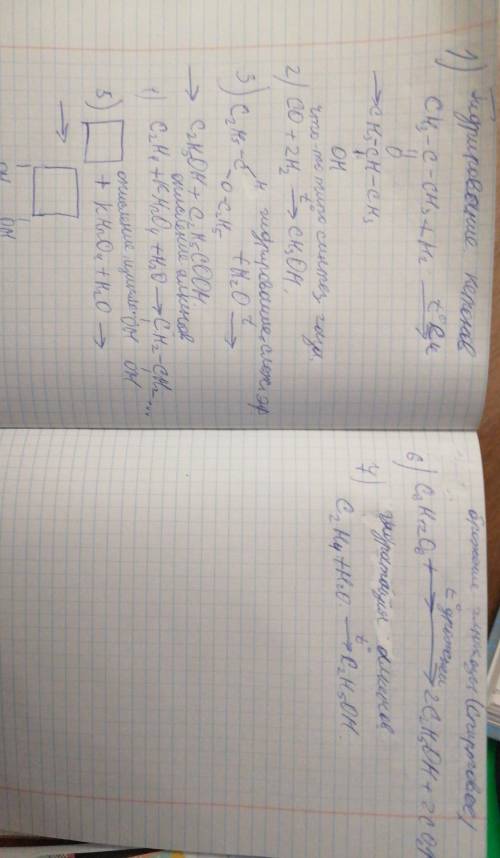 1) Гидрирование кетонов
CH3-C-CH3 + H2 t° Cu →
O
→ CH3-CH-CH3
OH
что-то типо синтез газа
2) CO + 2H2 t→ CH3OH.
3) C2H5-C
O-C2H5 + H2O t→
→ C2H5OH + C2H5COOH
окисление алкенов
1) C2H4 + KMnO4 + H2O → CH2-CH2...
OH OH
5) □ + KMnO4 + H2O →
→ □
OH OH
брожение глюкозы (спиртовое)
6) C6H12O6 → 2C2H5OH + 2CO2
7) гидратация алкенов
C2H4 + H2O t→ C2H5OH.